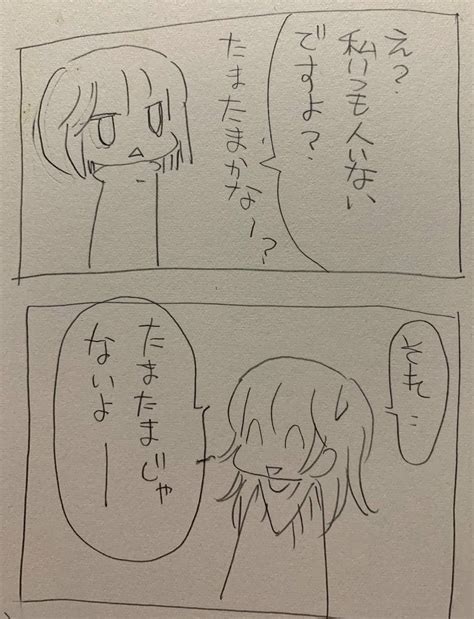 え？
私いつも人いない
ですよ？
たまたまかなー？
それ…
たまたまじゃ
ないよー